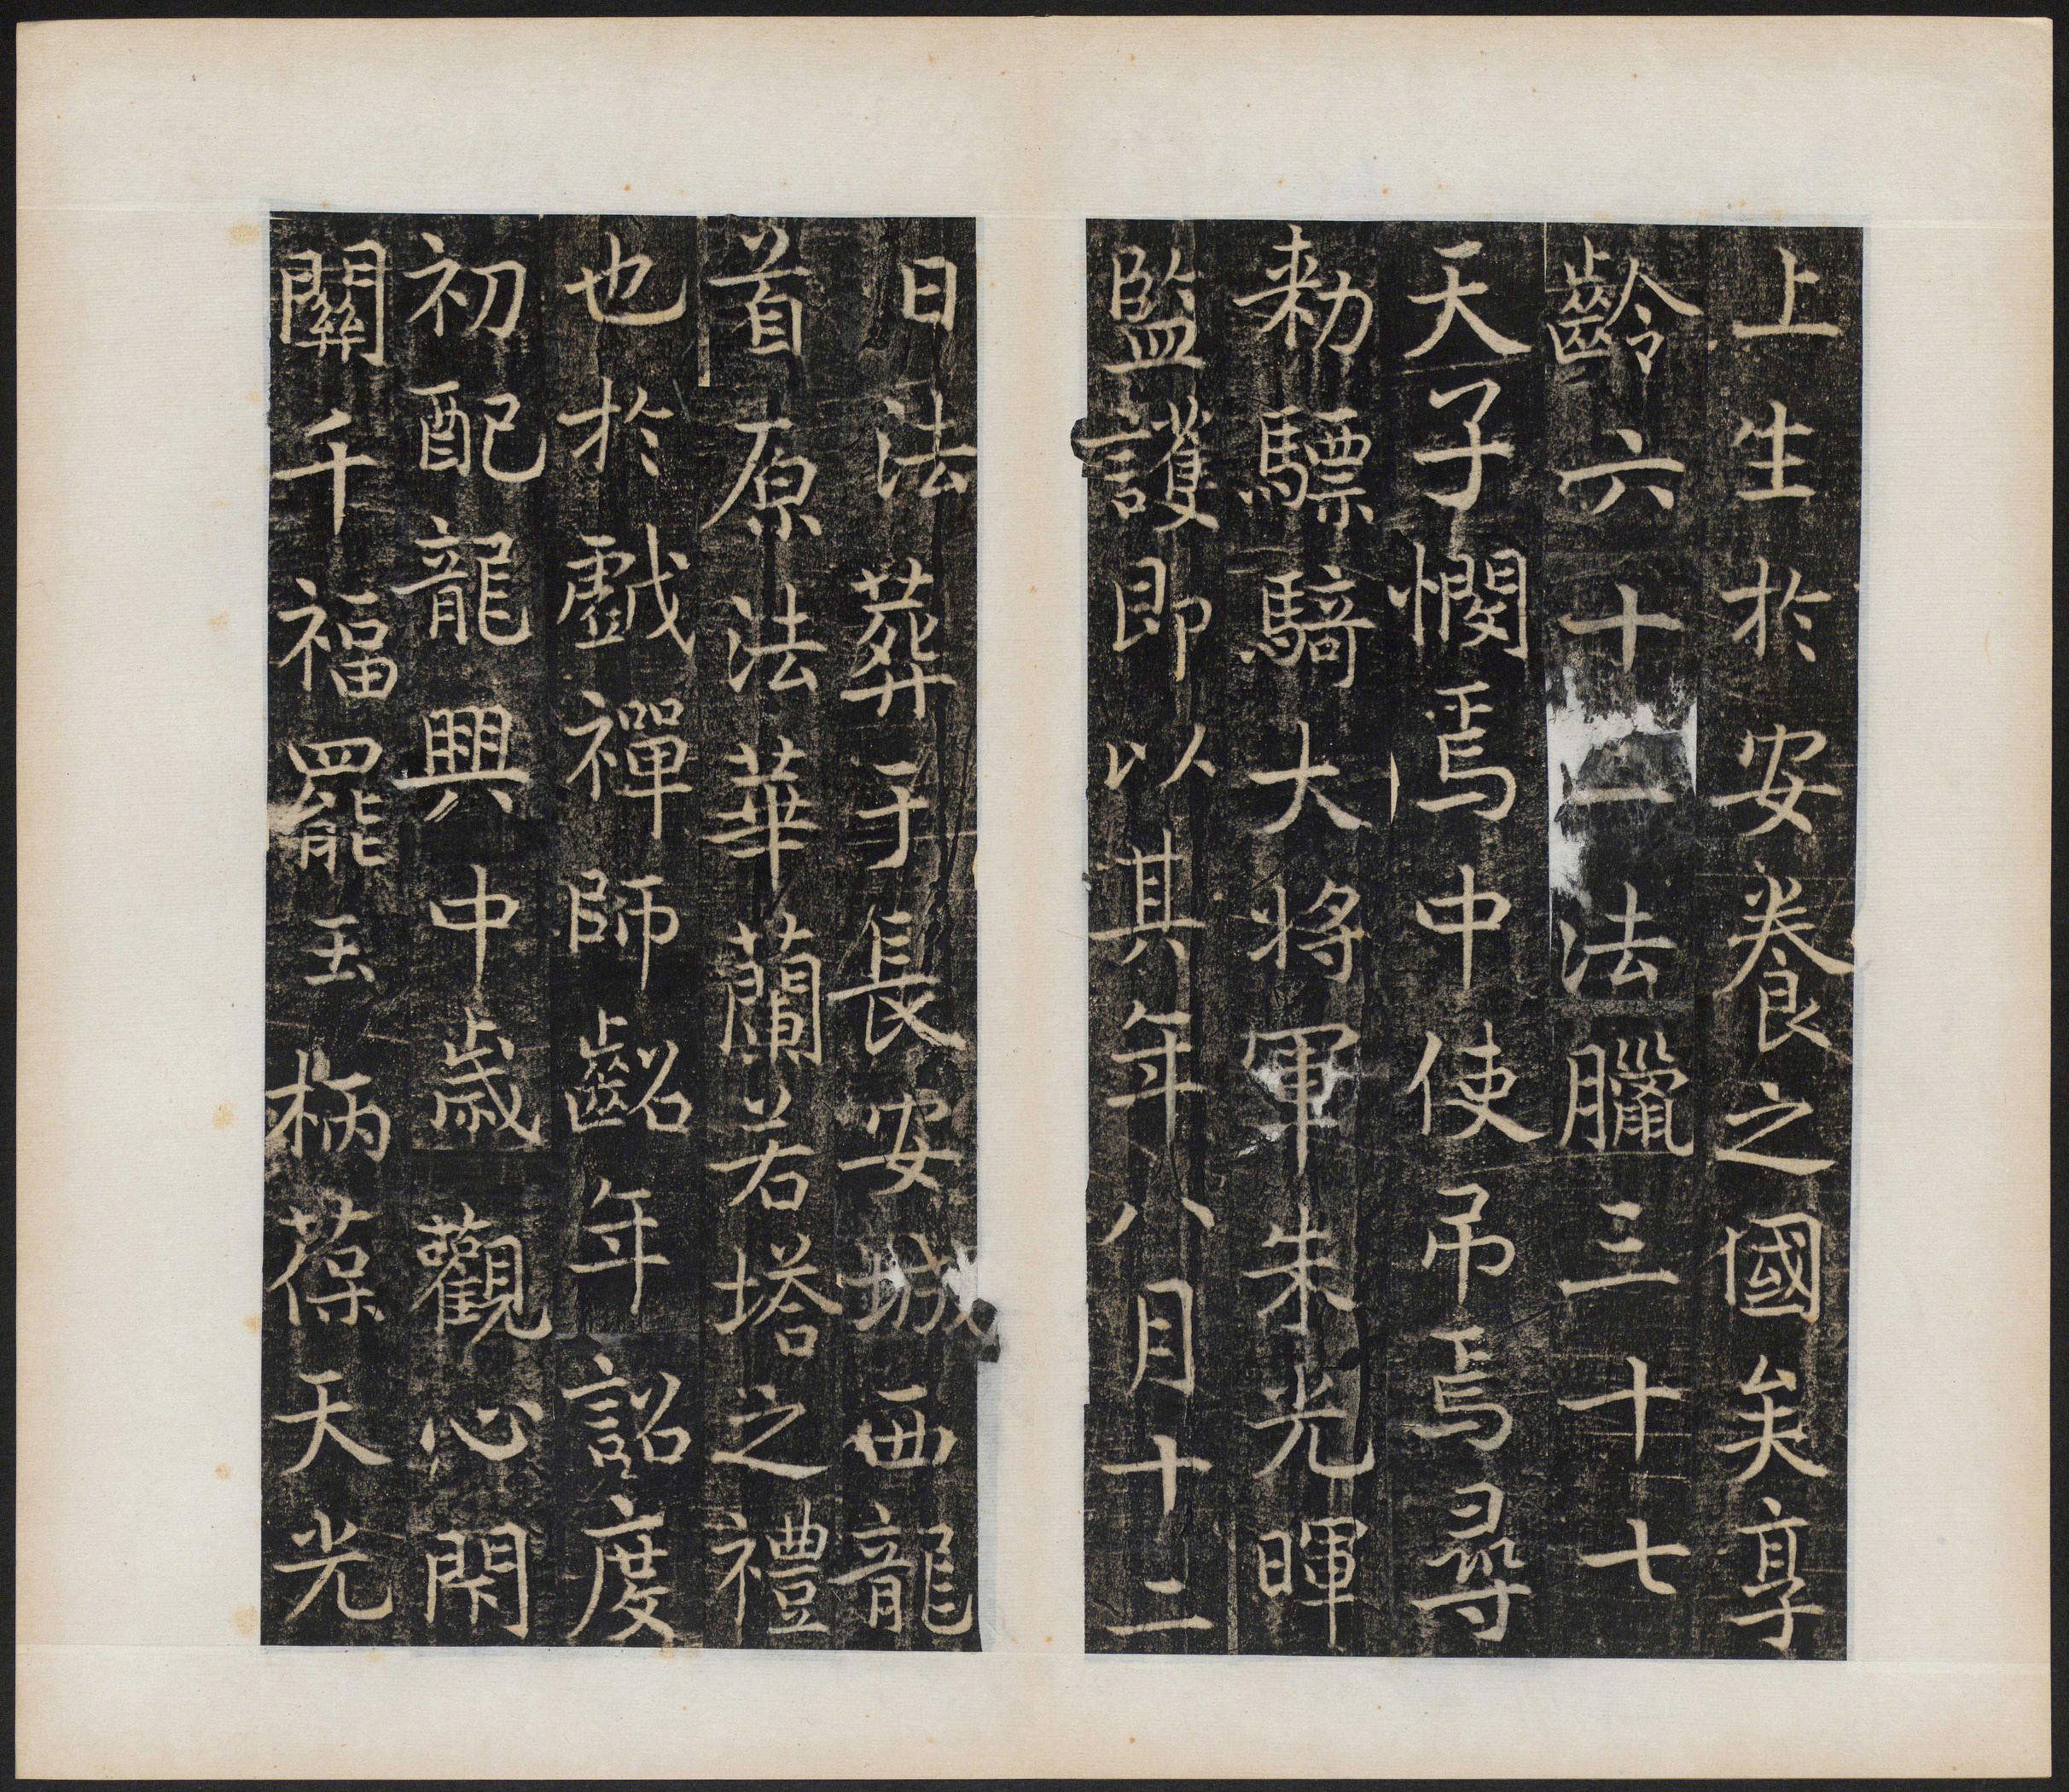 上生於安養之國矣享
齡六十一法臘三十七
天子憫焉中使吊焉尋
勑驃騎大將軍朱光暉
監護即以其年八月十二
日法葬于長安城西龍
首原法華蘭若塔之禮
也於戲禪師齠年詔度
初配龍興中歲觀心閑
關千福罷玉柄葆天光